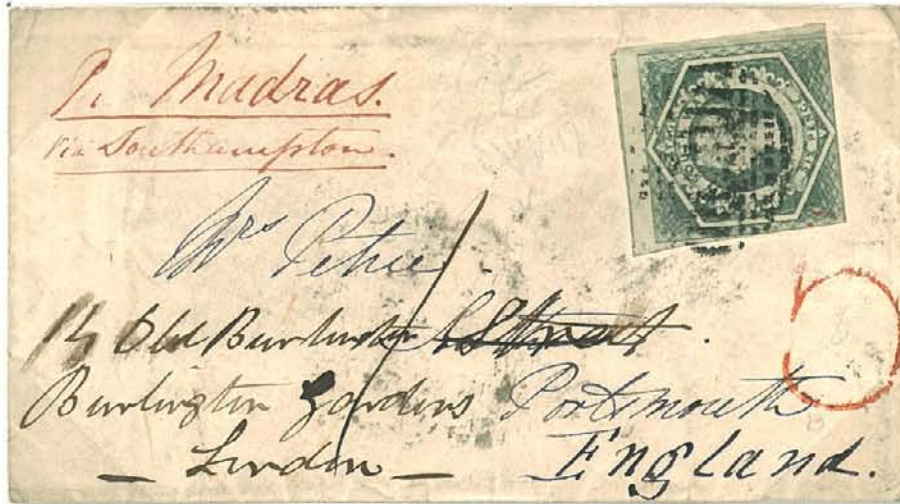 Pr Madras.
via Southampton.
Mrs Petrie.
14 Old Burlington Street.
Burlington Gardens Portsmouth
London England.